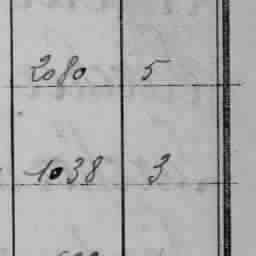 2080 5
1038 3